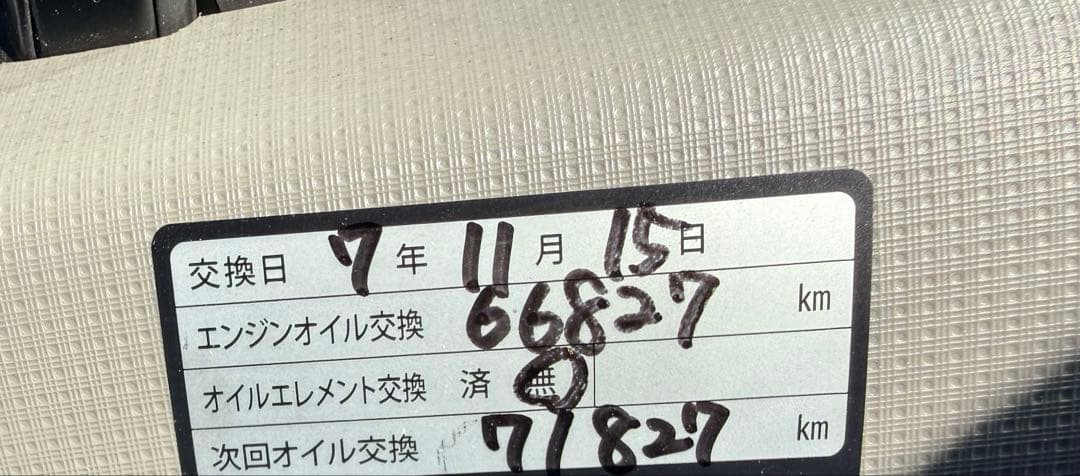 交換日 7年 11月 15日
エンジンオイル交換 66827 km
オイルエレメント交換 済 無
次回オイル交換 71827 km